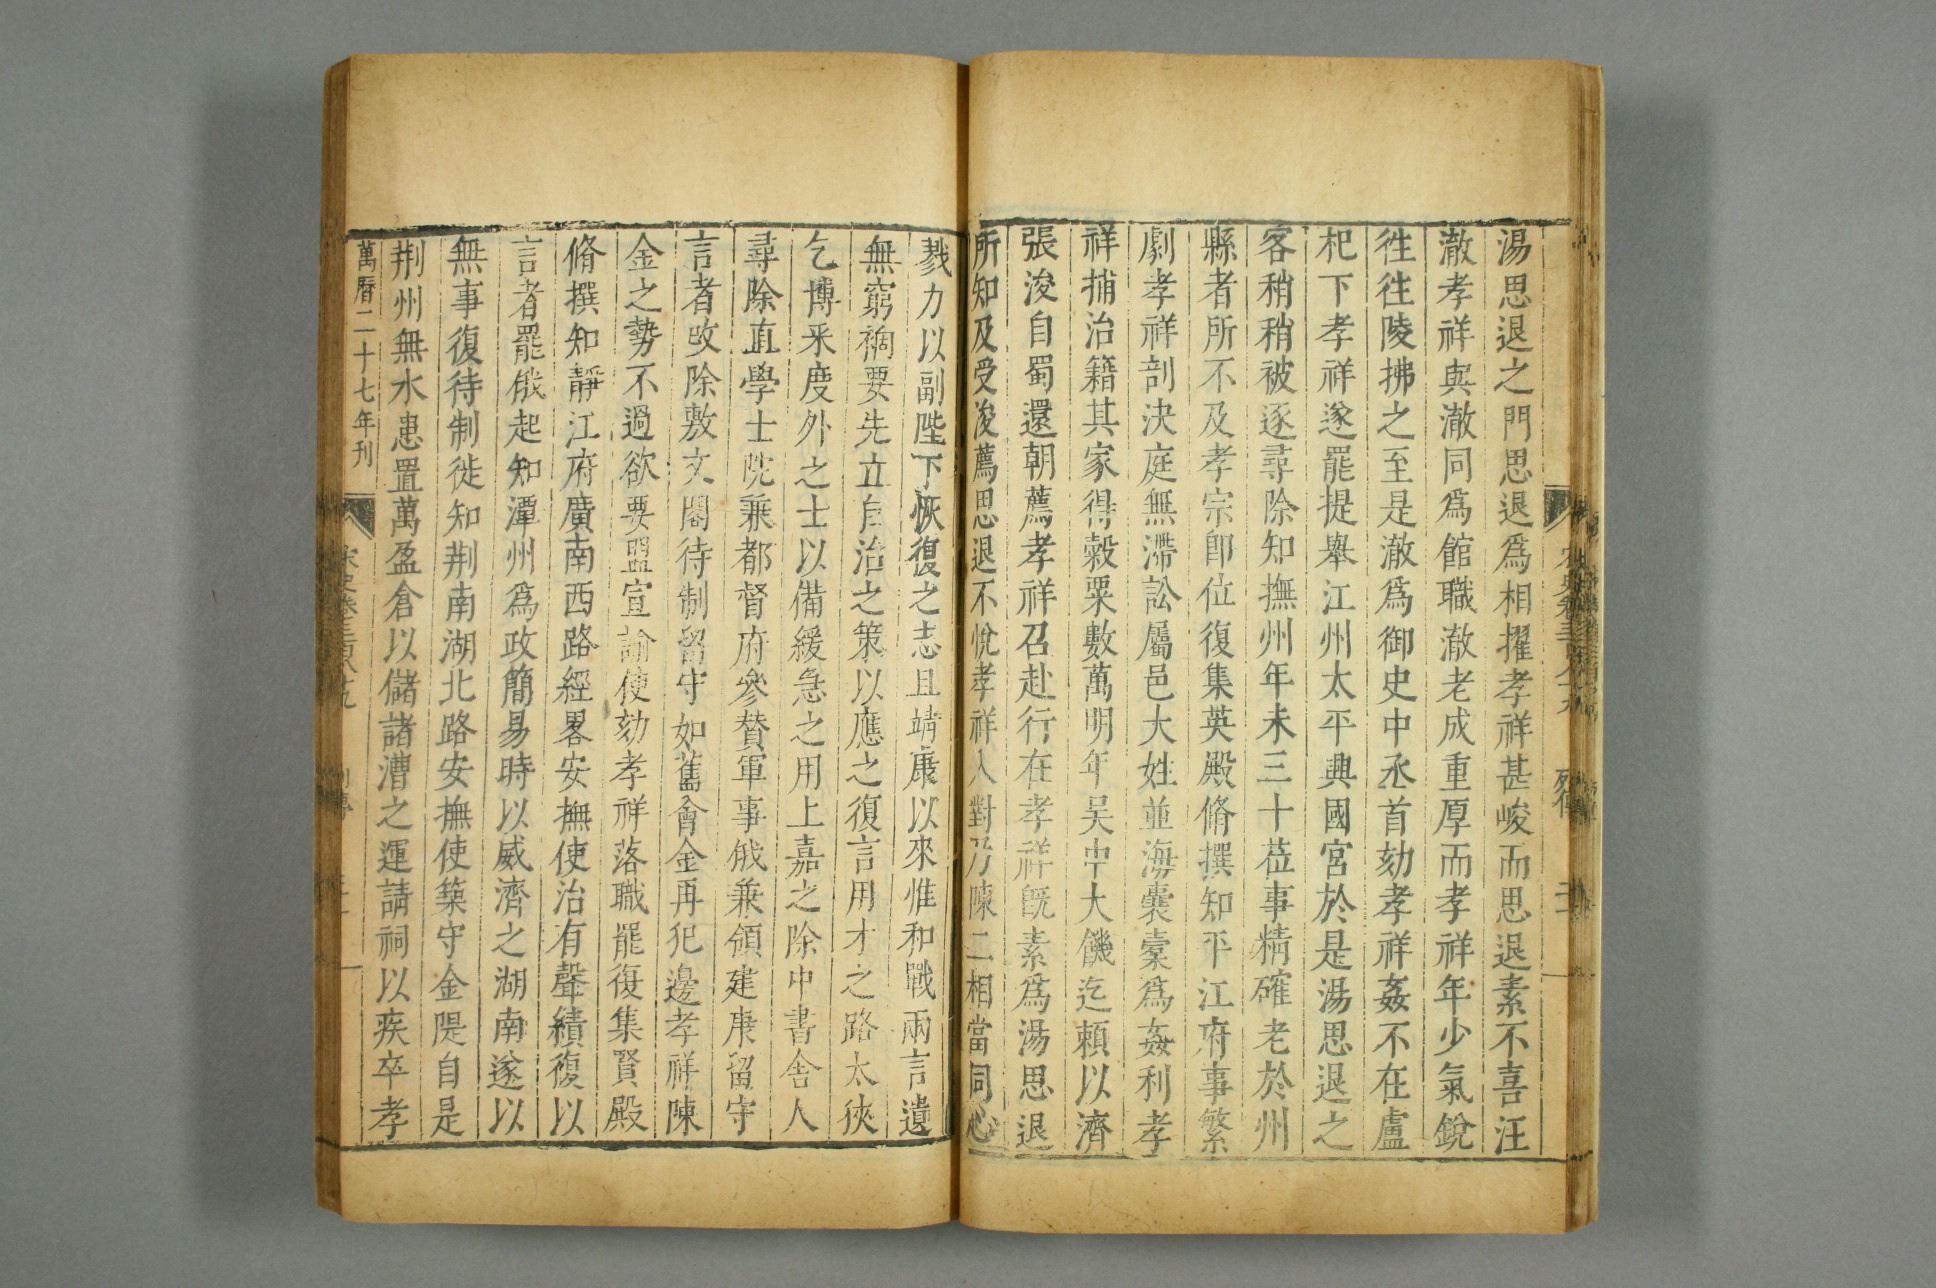 湯思退之門思退爲相擢孝祥甚峻而思退素不喜汪
澈孝祥與澈同爲館職澈老成重厚而孝祥年少氣銳
徃徃陵拂之至是澈爲御史中丞首劾孝祥姦不在盧
杞下孝祥遂罷提舉江州太平興國宮於是湯思退之
客稍稍被逐尋除知撫州年未三十莅事精確老於州
縣者所不及孝宗卽位復集英殿脩撰知平江府事繁
劇孝祥剖決庭無滯訟屬邑大姓並海囊橐爲姦利孝
祥捕治籍其家得穀粟數萬明年吴中大饑迄頼以濟
張浚自蜀還朝薦孝祥召赴行在孝祥旣素爲湯思退
所知及受浚薦思退不悅孝祥入對乃陳二相當同心
戮力以副陛下恢復之志且靖康以來惟和戰兩言遺
無窮禍要先立自治之策以應之復言用才之路太狹
乞博采度外之士以備緩急之用上嘉之除中書舍人
尋除直學士院兼都督府參賛軍事俄兼領建康留守
言者攺除敷文閣待制留守如舊會金再犯邊孝祥陳
金之勢不過欲要盟宣諭使劾孝祥落職罷復集賢殿
脩撰知靜江府廣南西路經畧安撫使治有聲績復以
言者罷俄起知潭州爲政簡易時以威濟之湖南遂以
無事復待制徙知荆南湖北路安撫使築守金隄自是
荆州無水患置萬盈倉以儲諸漕之運請祠以疾卒孝
萬曆二十七年刊
宋史卷三百八十九
列傳